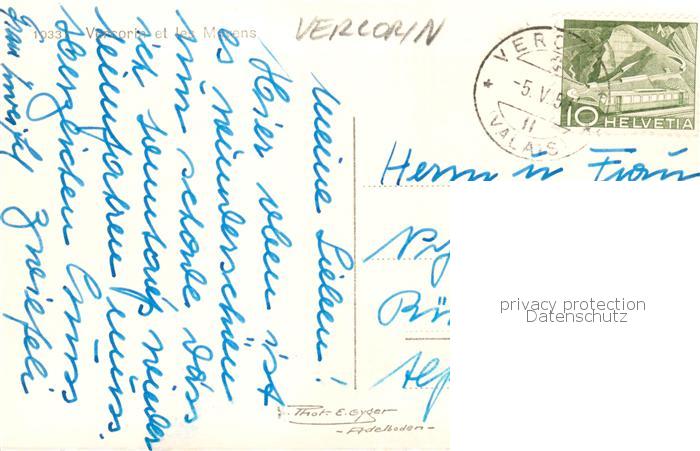 1033 Vercorin et les Mayens
VERCORIN
VERCO
-5.V.5
11
(VALAIS)
10 HELVETIA
Meine Lieben!
Hier oben ist
es wunderschön
nur schade dass
ich sonntags wieder
heimfahren muss.
Herzlichen Gruss
Zweifeli
Herrn u Frau
Rü
Alp
Phot. E. Gyger
- Adelboden -
privacy protection
Datenschutz